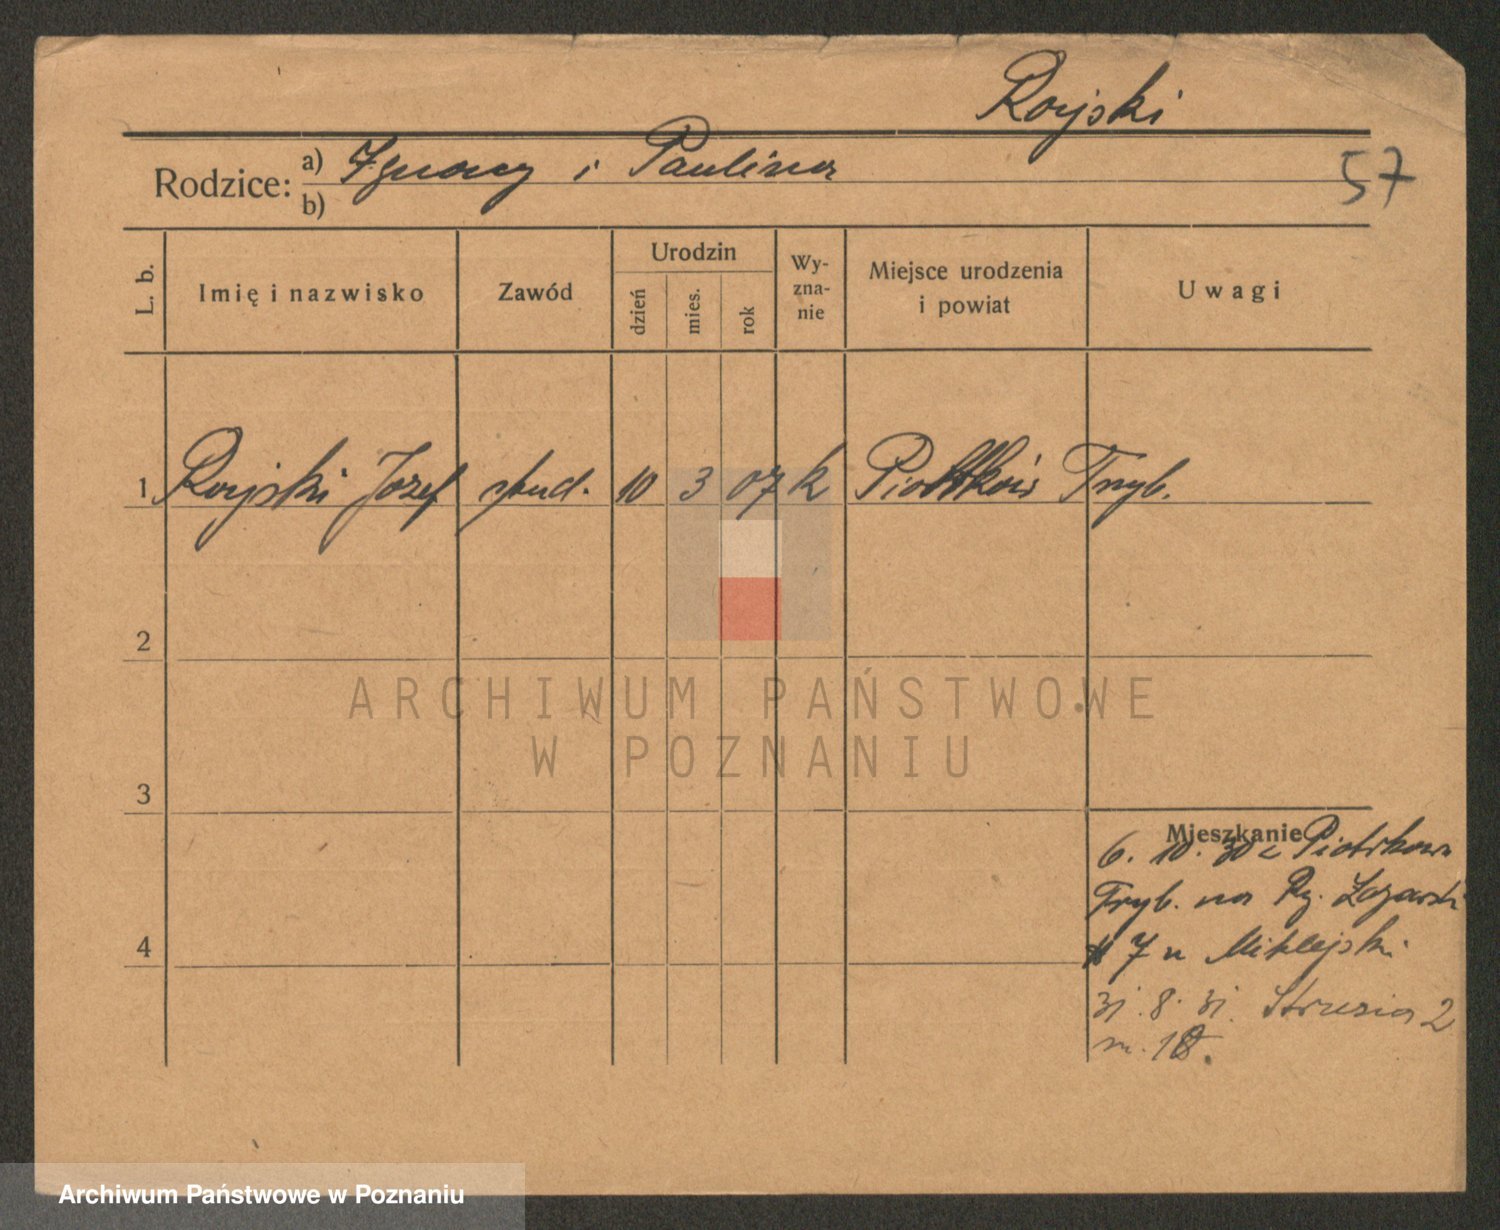 Rojski
Rodzice: a) Ignacy i Paulina
b)
57
L. b. Imię i nazwisko Zawód Urodzin dzień mies. rok Wy-zna-nie Miejsce urodzenia i powiat Uwagi
1 Rojski Józef stud. 10 3 07 k Piotrków Tryb.
2
3
4
Mieszkanie
6. 10. 30 z Piotrkowa
Tryb. na Ry. Łazarski
7 u Miklejski
31. 8. 31. Strusia 2
m. 18.
ARCHIWUM PAŃSTWOWE
W POZNANIU
Archiwum Państwowe w Poznaniu